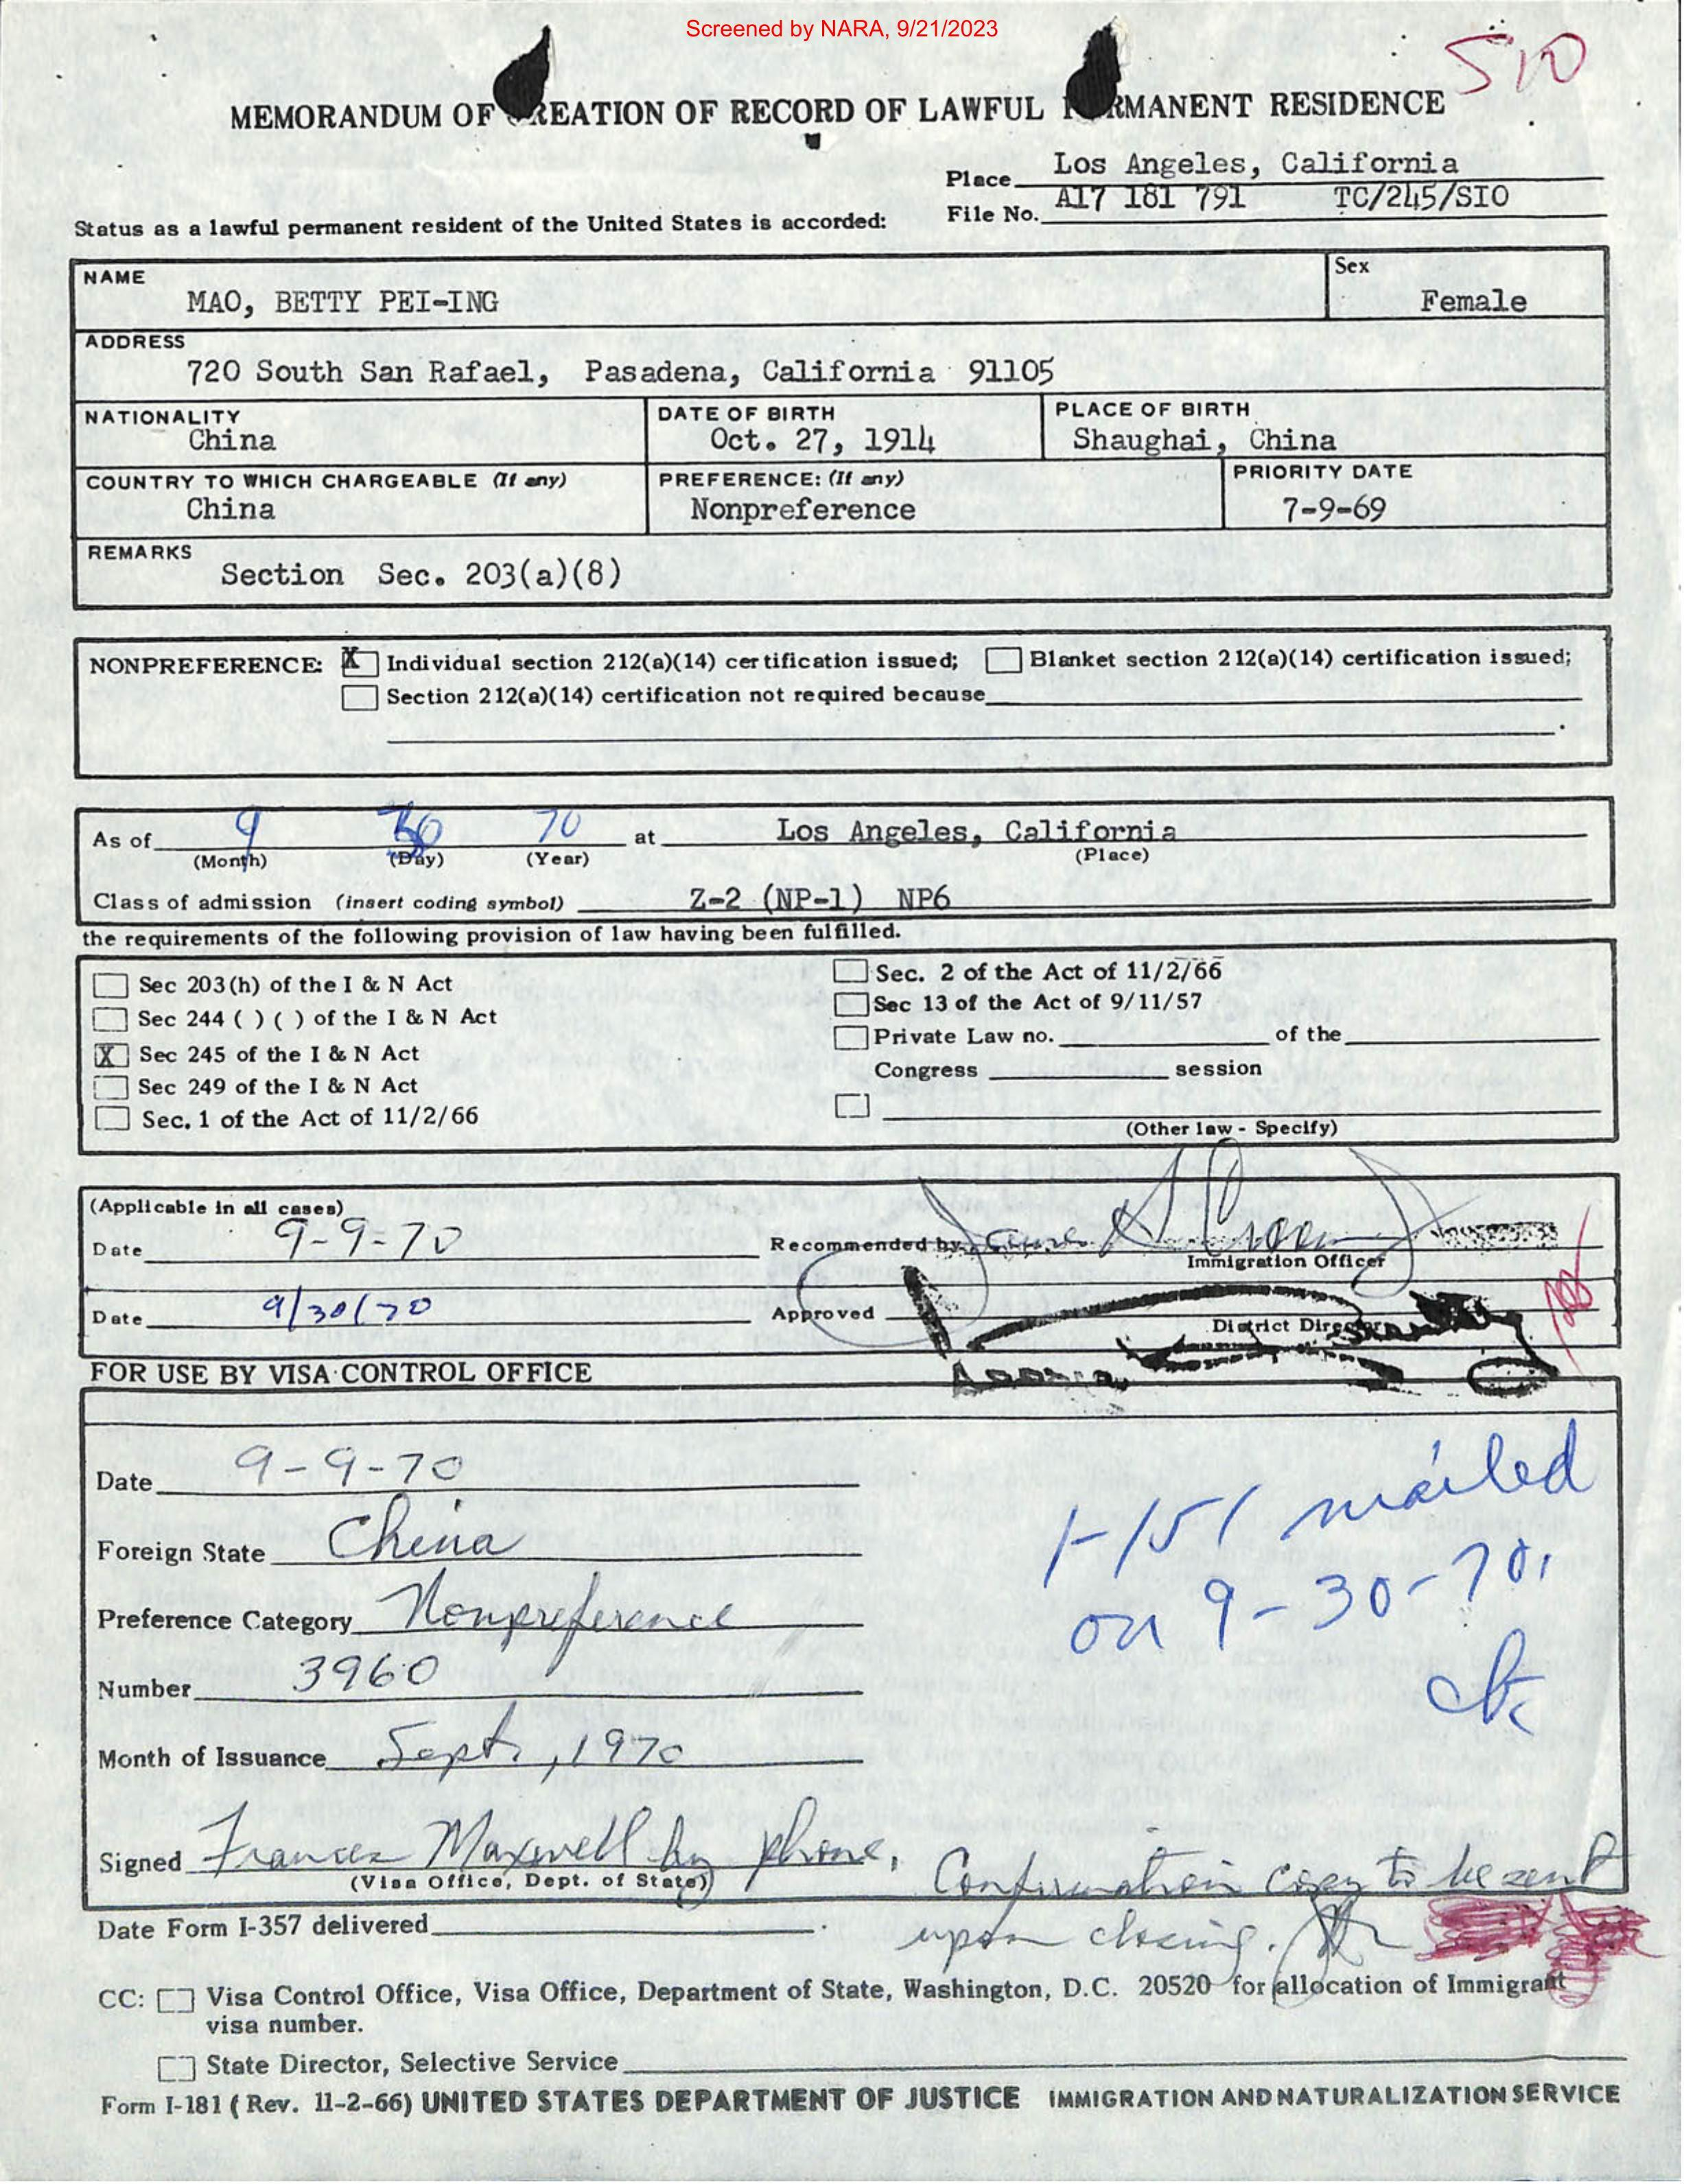 Screened by NARA, 9/21/2023
S10
MEMORANDUM OF CREATION OF RECORD OF LAWFUL PERMANENT RESIDENCE
Place Los Angeles, California
File No. A17 181 791 TC/245/SIO
Status as a lawful permanent resident of the United States is accorded:
NAME
MAO, BETTY PEI-ING
Sex
Female
ADDRESS
720 South San Rafael, Pasadena, California 91105
NATIONALITY
China
DATE OF BIRTH
Oct. 27, 1914
PLACE OF BIRTH
Shaughai, China
COUNTRY TO WHICH CHARGEABLE (If any)
China
PREFERENCE: (If any)
Nonpreference
PRIORITY DATE
7-9-69
REMARKS
Section Sec. 203(a)(8)
NONPREFERENCE: X Individual section 212(a)(14) certification issued; Blanket section 212(a)(14) certification issued;
Section 212(a)(14) certification not required because
As of 9 30 70 at Los Angeles, California
(Month) (Day) (Year) (Place)
Class of admission (insert coding symbol) Z-2 (NP-1) NP6
the requirements of the following provision of law having been fulfilled.
Sec 203(h) of the I & N Act
Sec 244 ( ) ( ) of the I & N Act
X Sec 245 of the I & N Act
Sec 249 of the I & N Act
Sec. 1 of the Act of 11/2/66
Sec. 2 of the Act of 11/2/66
Sec 13 of the Act of 9/11/57
Private Law no. of the
Congress session
(Other law - Specify)
(Applicable in all cases)
Date 9-9-70
Recommended by
Immigration Officer
Date 9/30/70
Approved
District Director
FOR USE BY VISA CONTROL OFFICE
Date 9-9-70
Foreign State China
Preference Category Nonpreference
Number 3960
Month of Issuance Sept., 1970
Signed Frances Maxwell by phone.
(Visa Office, Dept. of State)
I-151 mailed
on 9-30-70.
Confirmation copy to be sent
upon closing.
Date Form I-357 delivered
CC: Visa Control Office, Visa Office, Department of State, Washington, D.C. 20520 for allocation of Immigrant
visa number.
State Director, Selective Service
Form I-181 (Rev. 11-2-66) UNITED STATES DEPARTMENT OF JUSTICE IMMIGRATION AND NATURALIZATION SERVICE